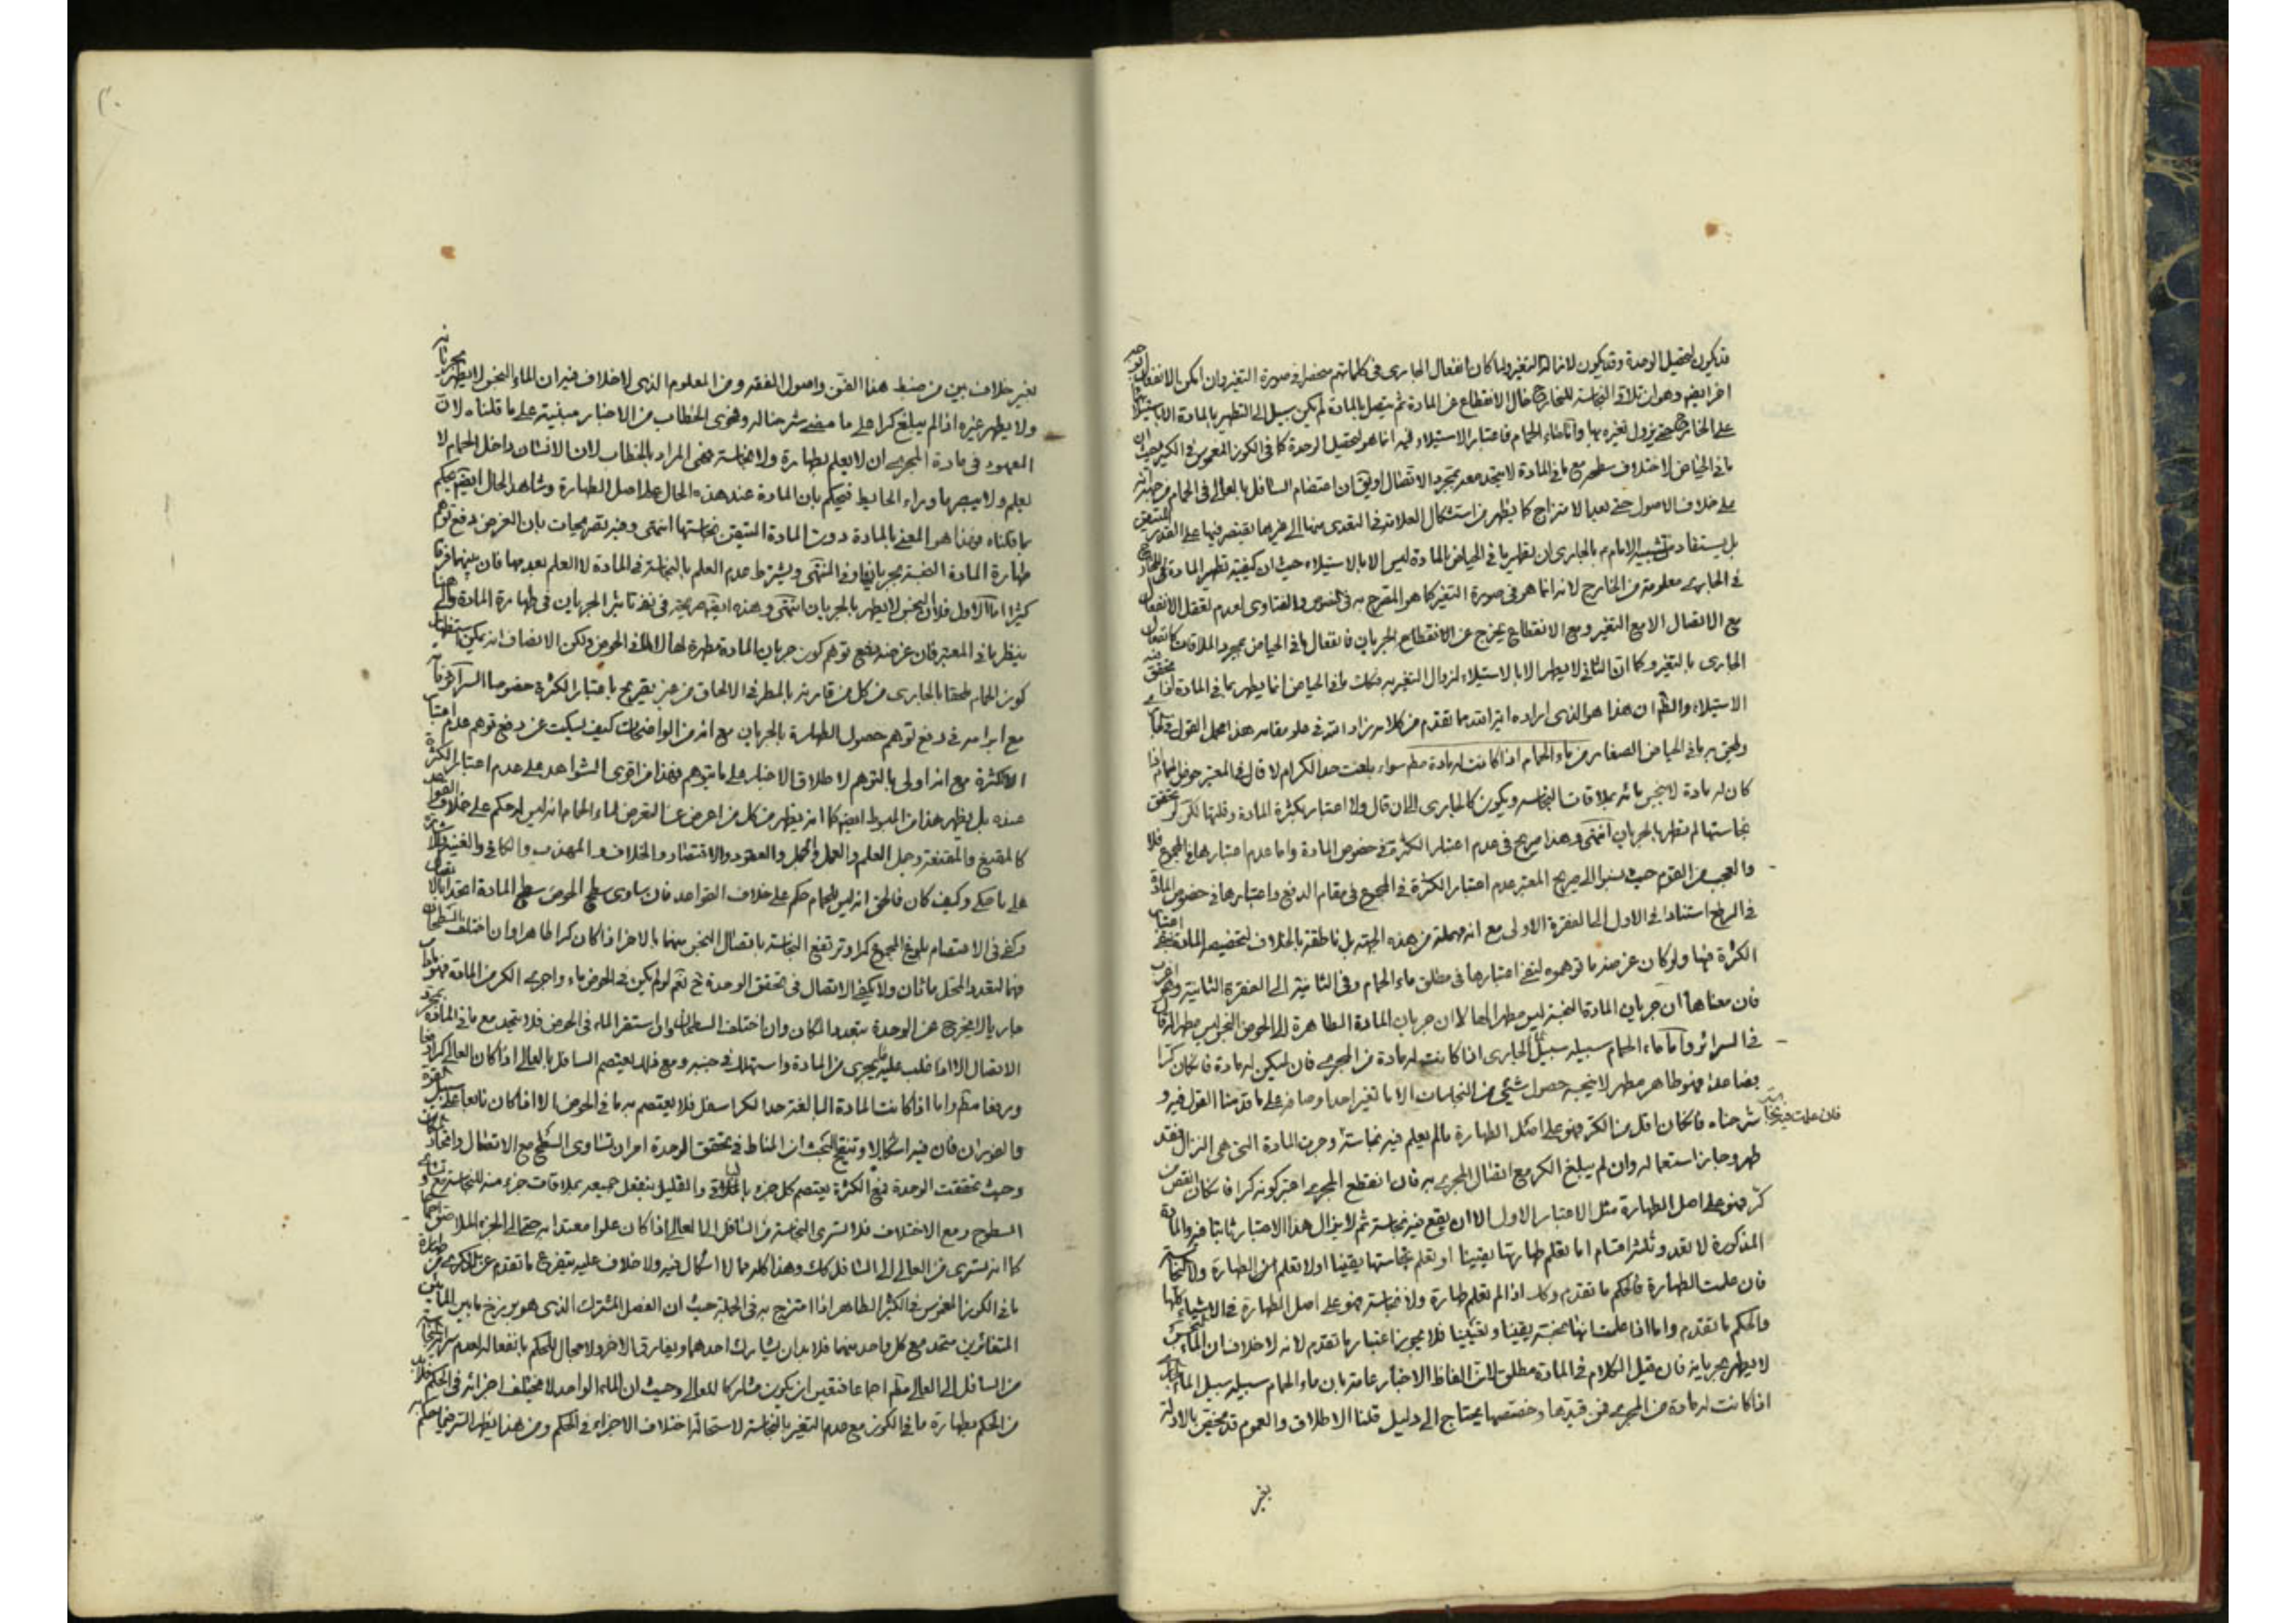 قد يكون لتحصيل الوحدة وقد يكون لازالة التغير ولما كان انفعال الجارى فى كلماتهم منحصرا فى صورة التغير وان امكن الانفعال
اخر ايضا وهو ان تلاقى النجاسة للخارج حال الانقطاع عن المادة ثم يتصل بالمادة لم يكن سبيل الى التطهير بالمادة الا بالاستيلاء
على الخارج حتى يزول تغيره بها واما ماء الحمام فاعتبار الاستيلاء فيه انما هو لتحصيل الوحدة كما فى الكوز المغموس فى الكثير حيث ان
ما فى الحياض لاختلاف سطحه مع ما فى المادة لا يتحد معه بمجرد الاتصال او يق ان اعتصام السافل بالعالى فى الحمام من حيث انه
على خلاف الاصول حتى بعد الامتزاج كما يظهر من استشكال العلامة فى التعدى منها الى غيرها يقتصر فيها على القدر المتيقن
بل يستفاد من تشبيه الامام م بالجارى ان تطهير ما فى الحياض بالمادة ليس الا بالاستيلاء حيث ان كيفية تطهير المادة للخارج
فى الجارى معلومة من الخارج لانه انما هو فى صورة التغير كما هو المصرح به فى النصوص والفتاوى لعدم تعقل الانفعال
مع الاتصال الا مع التغير ومع الانقطاع يخرج عن الانقطاع الجريان فانفعال ما فى الحياض بمجرد الملاقات كانفعال
الجارى بالتغير وكما ان الثانى لا يطهر الا بالاستيلاء لزوال التغير به فكك ما فى الحياض انما يطهر بما فى المادة اذا تحقق
الاستيلاء والظ ان هذا هو الذى اراده اية الله مما تقدم من كلامه زاد الله فى علو مقامه هذا مجمل القول فى
ويلحق به ما فى الحياض الصغار من ماء الحمام اذا كانت له مادة مط سواء بلغت حد الكر ام لا قال فى المعتبر حوض الحمام اذا
كان له مادة لا ينجس مائه بملاقات النجاسه ويكون كالجارى الى ان قال ولا اعتبار بكثرة المادة وقلتها لكن لو تحقق
نجاستها لم تطهر بالجريان انتهى وهذا صريح فى عدم اعتبار الكثرة فى خصوص المادة واما عدم اعتبارها فى المجموع فلا
والعجب من القوم حيث نسبوا الى صريح المعتبر عدم اعتبار الكثرة فى المجموع فى مقام الدفع واعتبارها فى خصوص المادة
فى الرفع استنادا فى الاول الى الفقرة الاولى مع انه مهملة من هذه الجهة بل ناطقة بالخلاف لتخصيصه المادة بنفى اعتبار
الكثرة فيها ولو كان غرضه ما توهموه لنفى اعتبارها فى مطلق ماء الحمام وفى الثانية الى الفقرة الثانية وهو اغرب
فان معناها ان جريان المادة النجسة ليس مطهرا لها لا ان جريان المادة الطاهرة الى الحوض النجس ليس مطهرا له قال
فى السرائر واما ماء الحمام سبيله سبيل الجارى اذا كانت له مادة من المجرى فان لم يكن له مادة فان كان كرا
فصاعدا فهو طاهر مطهر لا ينجسه حصول شىء من النجاسات الا ما تغير احد اوصافه على ما قدمنا القول فيه و
شرحناه فان كان اقل من الكر فهو على اصل الطهارة ما لم يعلم فيه نجاسة وجرت المادة التى هى النزال فقد
فان علمت فيه نجاسة
طهر وجاز استعماله وان لم يبلغ الكر مع اتصال المجرى به فان انقطع المجرى اعتبر كونه كرا فان كان انقص من
كر فهو على اصل الطهارة مثل الاعتبار الاول الا ان يقع فيه نجاسة ثم لا يزال هذا الاعتبار ثابتا فيه والمادة
المذكورة لا تعدو ثلثة اقسام اما يعلم طهارتها يقينا او يعلم نجاستها يقينا او لا تعلم من الطهارة ولا النجاسة
فان علمت الطهارة فالحكم ما تقدم وكك اذا لم تعلم طهارة ولا نجاسة فهو على اصل الطهارة فى الاشياء كلها
والحكم ما تقدم واما اذا علمت انها نجسة يقينا وتعيينا فلا يجوز اعتبار ما تقدم لانه لا خلاف ان الماء النجس
لا يطهر بجريانه فان قيل الكلام فى المادة مطلق لان الفاظ الاخبار عامة بان ماء الحمام سبيله سبيل الماء الجارى
اذا كانت له مادة من المجرى فمن قيدها وخصصها يحتاج الى دليل قلنا الاطلاق والعموم قد يخص بالادلة
بغير
لغير خلاف بين من ضبط هذا الفن واصول الفقه ومن المعلوم الذى لا خلاف فيه ان الماء النجس لا يطهر بجريانه
ولا يطهر غيره اذا لم يبلغ كرا على ما مضى شرحنا له وفحوى الخطاب من الاخبار مبنية على ما قلناه لان
المعهود فى مادة المجرى ان لا يعلم بطهارة ولا نجاسة فهى المراد بالخطاب لان الانسان داخل الحمام لا
يعلم ولا يبصر ما وراء الحايط فيحكم بان المادة عند هذه الحال على اصل الطهارة وشاهد الحال ايضا يحكم
بما قلناه فهذا هو المعنى بالمادة دون المادة المتيقن نجاستها انتهى وفيه تصريحات بان الغرض دفع توهم
طهارة المادة النجسة بجريانها وفى المنتهى ويشترط عدم العلم بالنجاسة فى المادة لا العلم بعدمها فان بينهما فرقا
كثيرا اما الاول فلان النجس لا يطهر بالجريان انتهى وهذه ايضا صريحة فى نفى تاثير الجريان فى طهارة المادة والى هذا
ينظر ما فى المعتبر فان غرضه دفع توهم كون جريان المادة مطهرة لها لا لما فى الحوض ولكن الانصاف انه يمكن استظهار
كون الحمام ملحقا بالجارى من كل من قارنه بالمطر فى الالحاق من غير تصريح باعتبار الكثرة خصوصا السرائر فانه
مع ابرامه فى دفع توهم حصول الطهارة بالجريان مع انه من الواضحات كيف يسكت عن دفع توهم عدم اعتبار
الكثرة مع انه اولى بالتوهم لاطلاق الاخبار على ما يتوهم فهذا من اقوى الشواهد على عدم اعتبار الكثرة
عنده بل يظهر هذا من المبسوط ايضا كما انه يظهر من كل من اعرض عن التعرض لماء الحمام انه ليس له حكم على خلاف القواعد
كالمقنع والمقنعة وجمل العلم والعمل والجمل والعقود والاقتصاد والخلاف والمهذب والكافى والغنية
على ما حكى وكيف كان فالحق انه ليس للحمام حكم على خلاف القواعد فان ساوى سطح الحوض سطح المادة اتحدا بالاتصال
وكفى فى الاعتصام بلوغ المجموع كرا وترتفع النجاسة باتصال النجس منهما بالاخر اذا كان كرا طاهرا وان اختلف السطحان
فهما لتعدد المحل ماءان ولا يكفى الاتصال فى تحقق الوحدة ح نعم لو لم يكن فى الحوض ماء واجرى الكر من المادة فهو مادام
جاريا لا يخرج عن الوحدة بتعدد المكان وان اختلف السطحان وان استقر الماء فى الحوض فلا يتحد مع ما فى المادة بمجرد
الاتصال الا اذا غلب عليه ما يجرى من المادة واستهلك فى جنبه ومع ذلك يعتصم السافل بالعالى اذا كان العالى كرا دفعا
ورفعا مط واما اذا كانت المادة البالغة حد الكر اسفل فلا يعتصم به ما فى الحوض الا اذا كان نابعا على سبيل القوة
والفوران فان فيه اشكالا وتنقيح البحث ان المناط فى تحقق الوحدة امران تساوى السطح مع الاتصال واتحاد المكان
وحيث تحققت الوحدة فمع الكثرة يعتصم كل جزء بالباقى والقليل ينفعل جميعه بملاقات جزء منه للنجاسة مع تساوى
السطوح ومع الاختلاف فلا تسرى النجاسة من السافل الى العالى اذا كان علوا معتدا به حتى الى الجزء الملاصق اجماعا
كما انه تسرى من العالى الى السافل كك وهذا كله مما لا اشكال فيه ولا خلاف عليه يتفرع ما تقدم عن الذكرى من طهارة
ما فى الكوز المغموس فى الكثير الطاهر اذا امتزج به فى الجملة حيث ان الفصل المشترك الذى هو برزخ ما بين المائين
المتغائرين متحد مع كل واحد منهما فلا بد ان يشارك احدهما ويفارق الاخر ولا مجال للحكم بانفعاله لعدم سراية النجاسة
من السافل الى العالى مط اجماعا فتعين ان يكون مشاركا للعالى وحيث ان الماء الواحد لا يختلف اجزائه فى الحكم فلابد
من الحكم بطهارة ما فى الكوز مع عدم التغير بالنجاسة لاستحالة اختلاف الاجزاء فى الحكم ومن هذا يظهر السر فيما حكم به